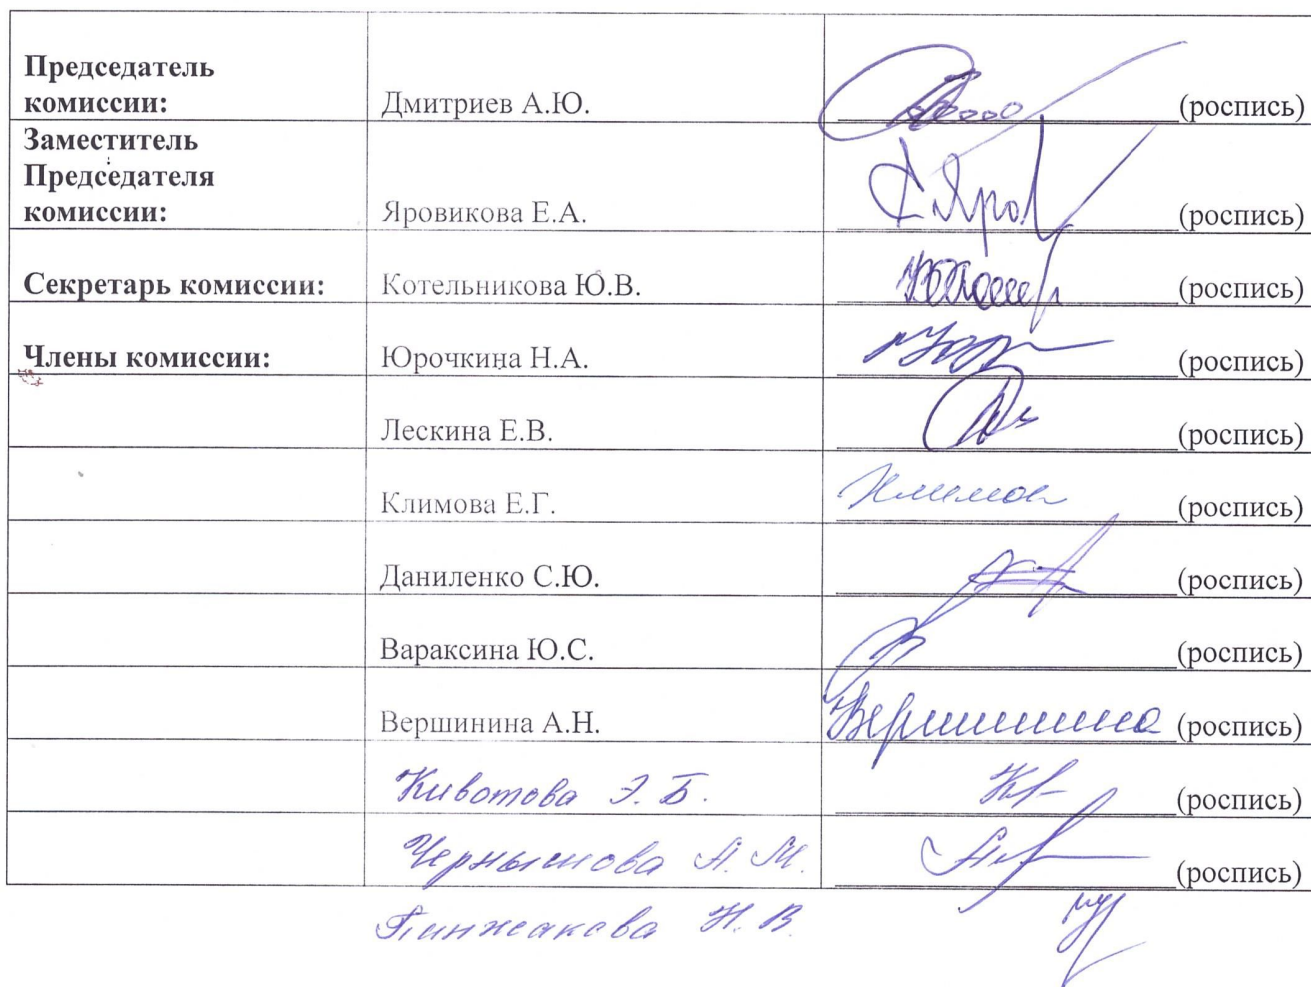 Председатель
комиссии: Дмитриев А.Ю. (роспись)
Заместитель
Председателя
комиссии: Яровикова Е.А. (роспись)
Секретарь комиссии: Котельникова Ю.В. (роспись)
Члены комиссии: Юрочкина Н.А. (роспись)
Лескина Е.В. (роспись)
Климова Е.Г. Климов (роспись)
Даниленко С.Ю. (роспись)
Вараксина Ю.С. (роспись)
Вершинина А.Н. Вершинина (роспись)
Кивотова Э.Б. (роспись)
А.М. (роспись)
Пинжакова Н.В.